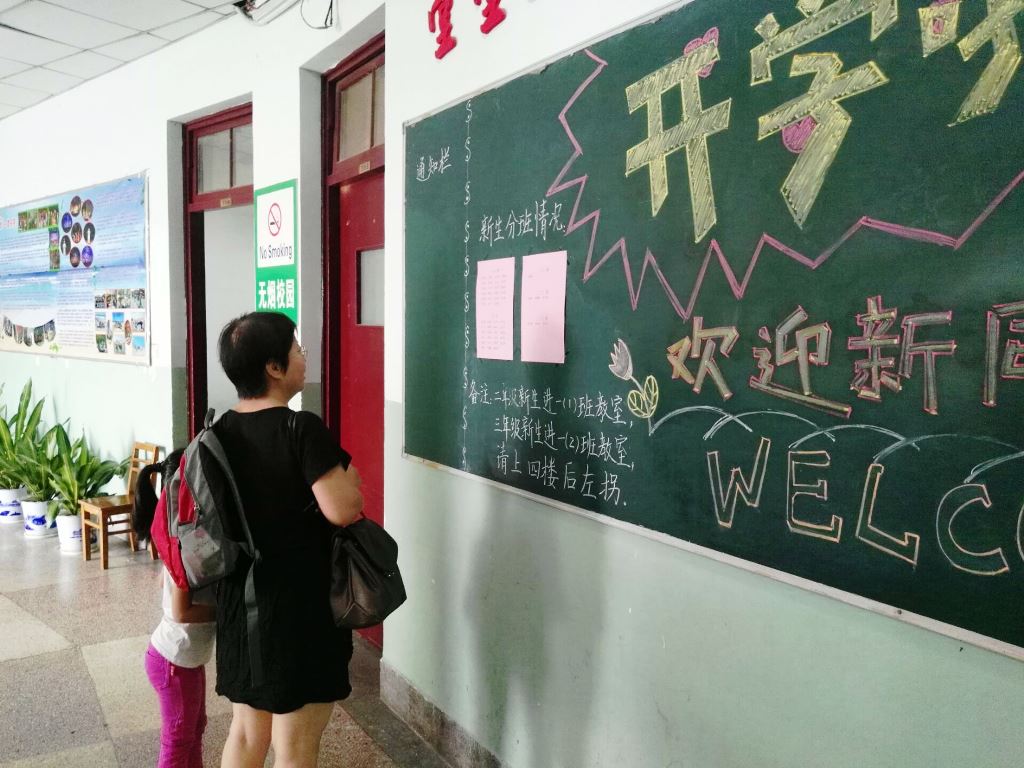 室
通知栏
新生分班情况.
备注:二年级新生进一(1)班教室,
三年级新生进一(2)班教室,
请上四楼后左拐.
开学
欢迎新同
WELCO
No Smoking
无烟校园